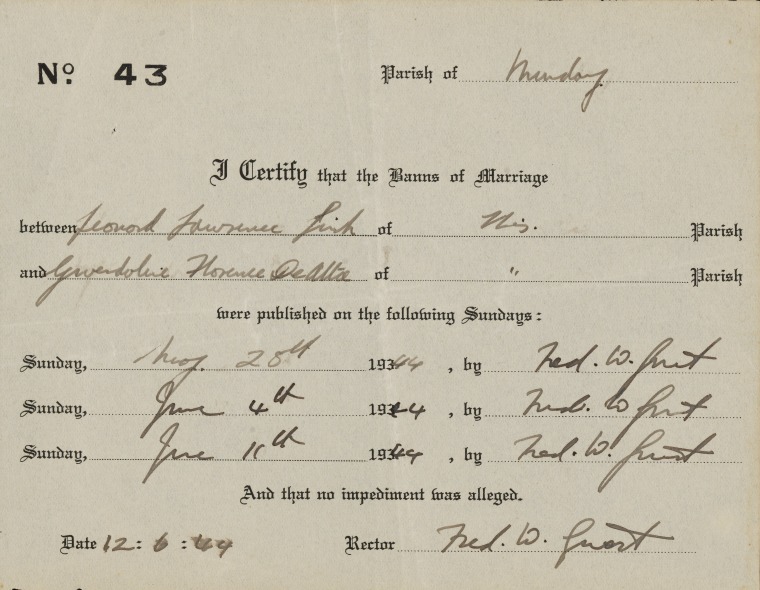 No. 43 Parish of
I Certify that the Banns of Marriage
between Leonard Lawrence Link of this. Parish
and Gwendoline Florence DeAlta of " Parish
were published on the following Sundays:
Sunday, May 28th 19344, by Fred. W. Guest
Sunday, June 4th 19344, by Fred. W. Guest
Sunday, June 11th 19344, by Fred. W. Guest
And that no impediment was alleged.
Date 12: 6 :44 Rector Fred. W. Guest